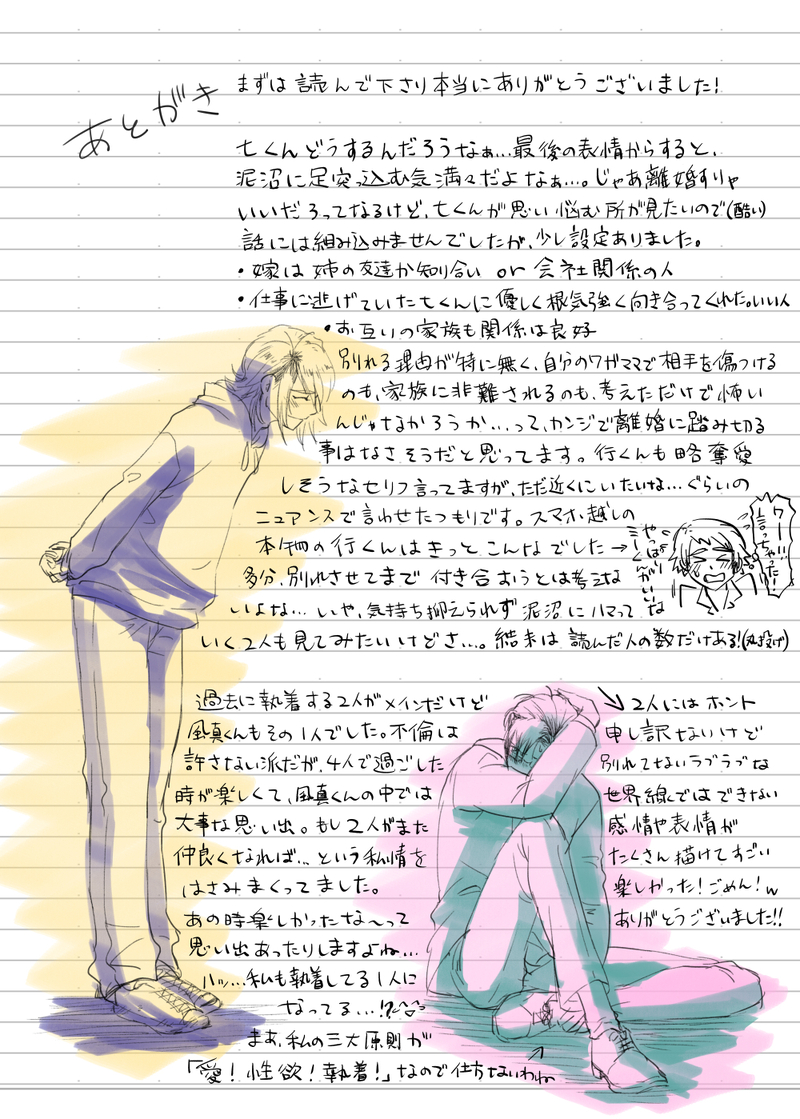 あとがき
まずは読んで下さり本当にありがとうございました!
七くんどうするんだろうなぁ…最後の表情からすると、
泥沼に足突っ込む気満々だよなぁ…。じゃあ離婚すりゃ
いいだろってなるけど、七くんが思い悩む所が見たいので(酷い)
話には組み込みませんでしたが、少し設定ありました。
・嫁は姉の友達か知り合い or 会社関係の人
・仕事に逃げていた七くんに優しく根気強く向き合ってくれた。いい人
・お互いの家族も関係は良好
別れる理由が特に無く、自分のワガママで相手を傷つける
のも、家族に非難されるのも、考えただけで怖い
んじゃなかろうか…って、カンジで離婚に踏み切る
事はなさそうだと思ってます。行くんも略奪愛
しそうなセリフ言ってますが、ただ近くにいたいな…ぐらいの
ニュアンスで言わせたつもりです。スマホ越しの
本編の行くんはきっとこんなでした→
多分、別れさせてまで付き合おうとは考えな
いよな…いや、気持ち抑えられず泥沼にハマって
いく2人も見てみたいけどさ…。結末は読んだ人の数だけある!(丸投げ)
ワー言っちゃったー!
やっぱ
過去に執着する2人がメインだけど
風真くんもその1人でした。不倫は
許さない派だが、4人で過ごした
時が楽しくて、風真くんの中では
大事な思い出。もし2人がまた
仲良くなれば…という私情を
はさみまくってました。
あの時楽しかったな〜って
思い出あったりしますよね…
ハッ…私も執着してる1人に
なってる…!?
まあ、私の三大原則が
「愛!性欲!執着!」なので仕方ないわね
↘2人にはホント
申し訳ないけど
別れてないラブラブな
世界線ではできない
感情や表情が
たくさん描けてすごい
楽しかった!ごめん!w
ありがとうございました!!